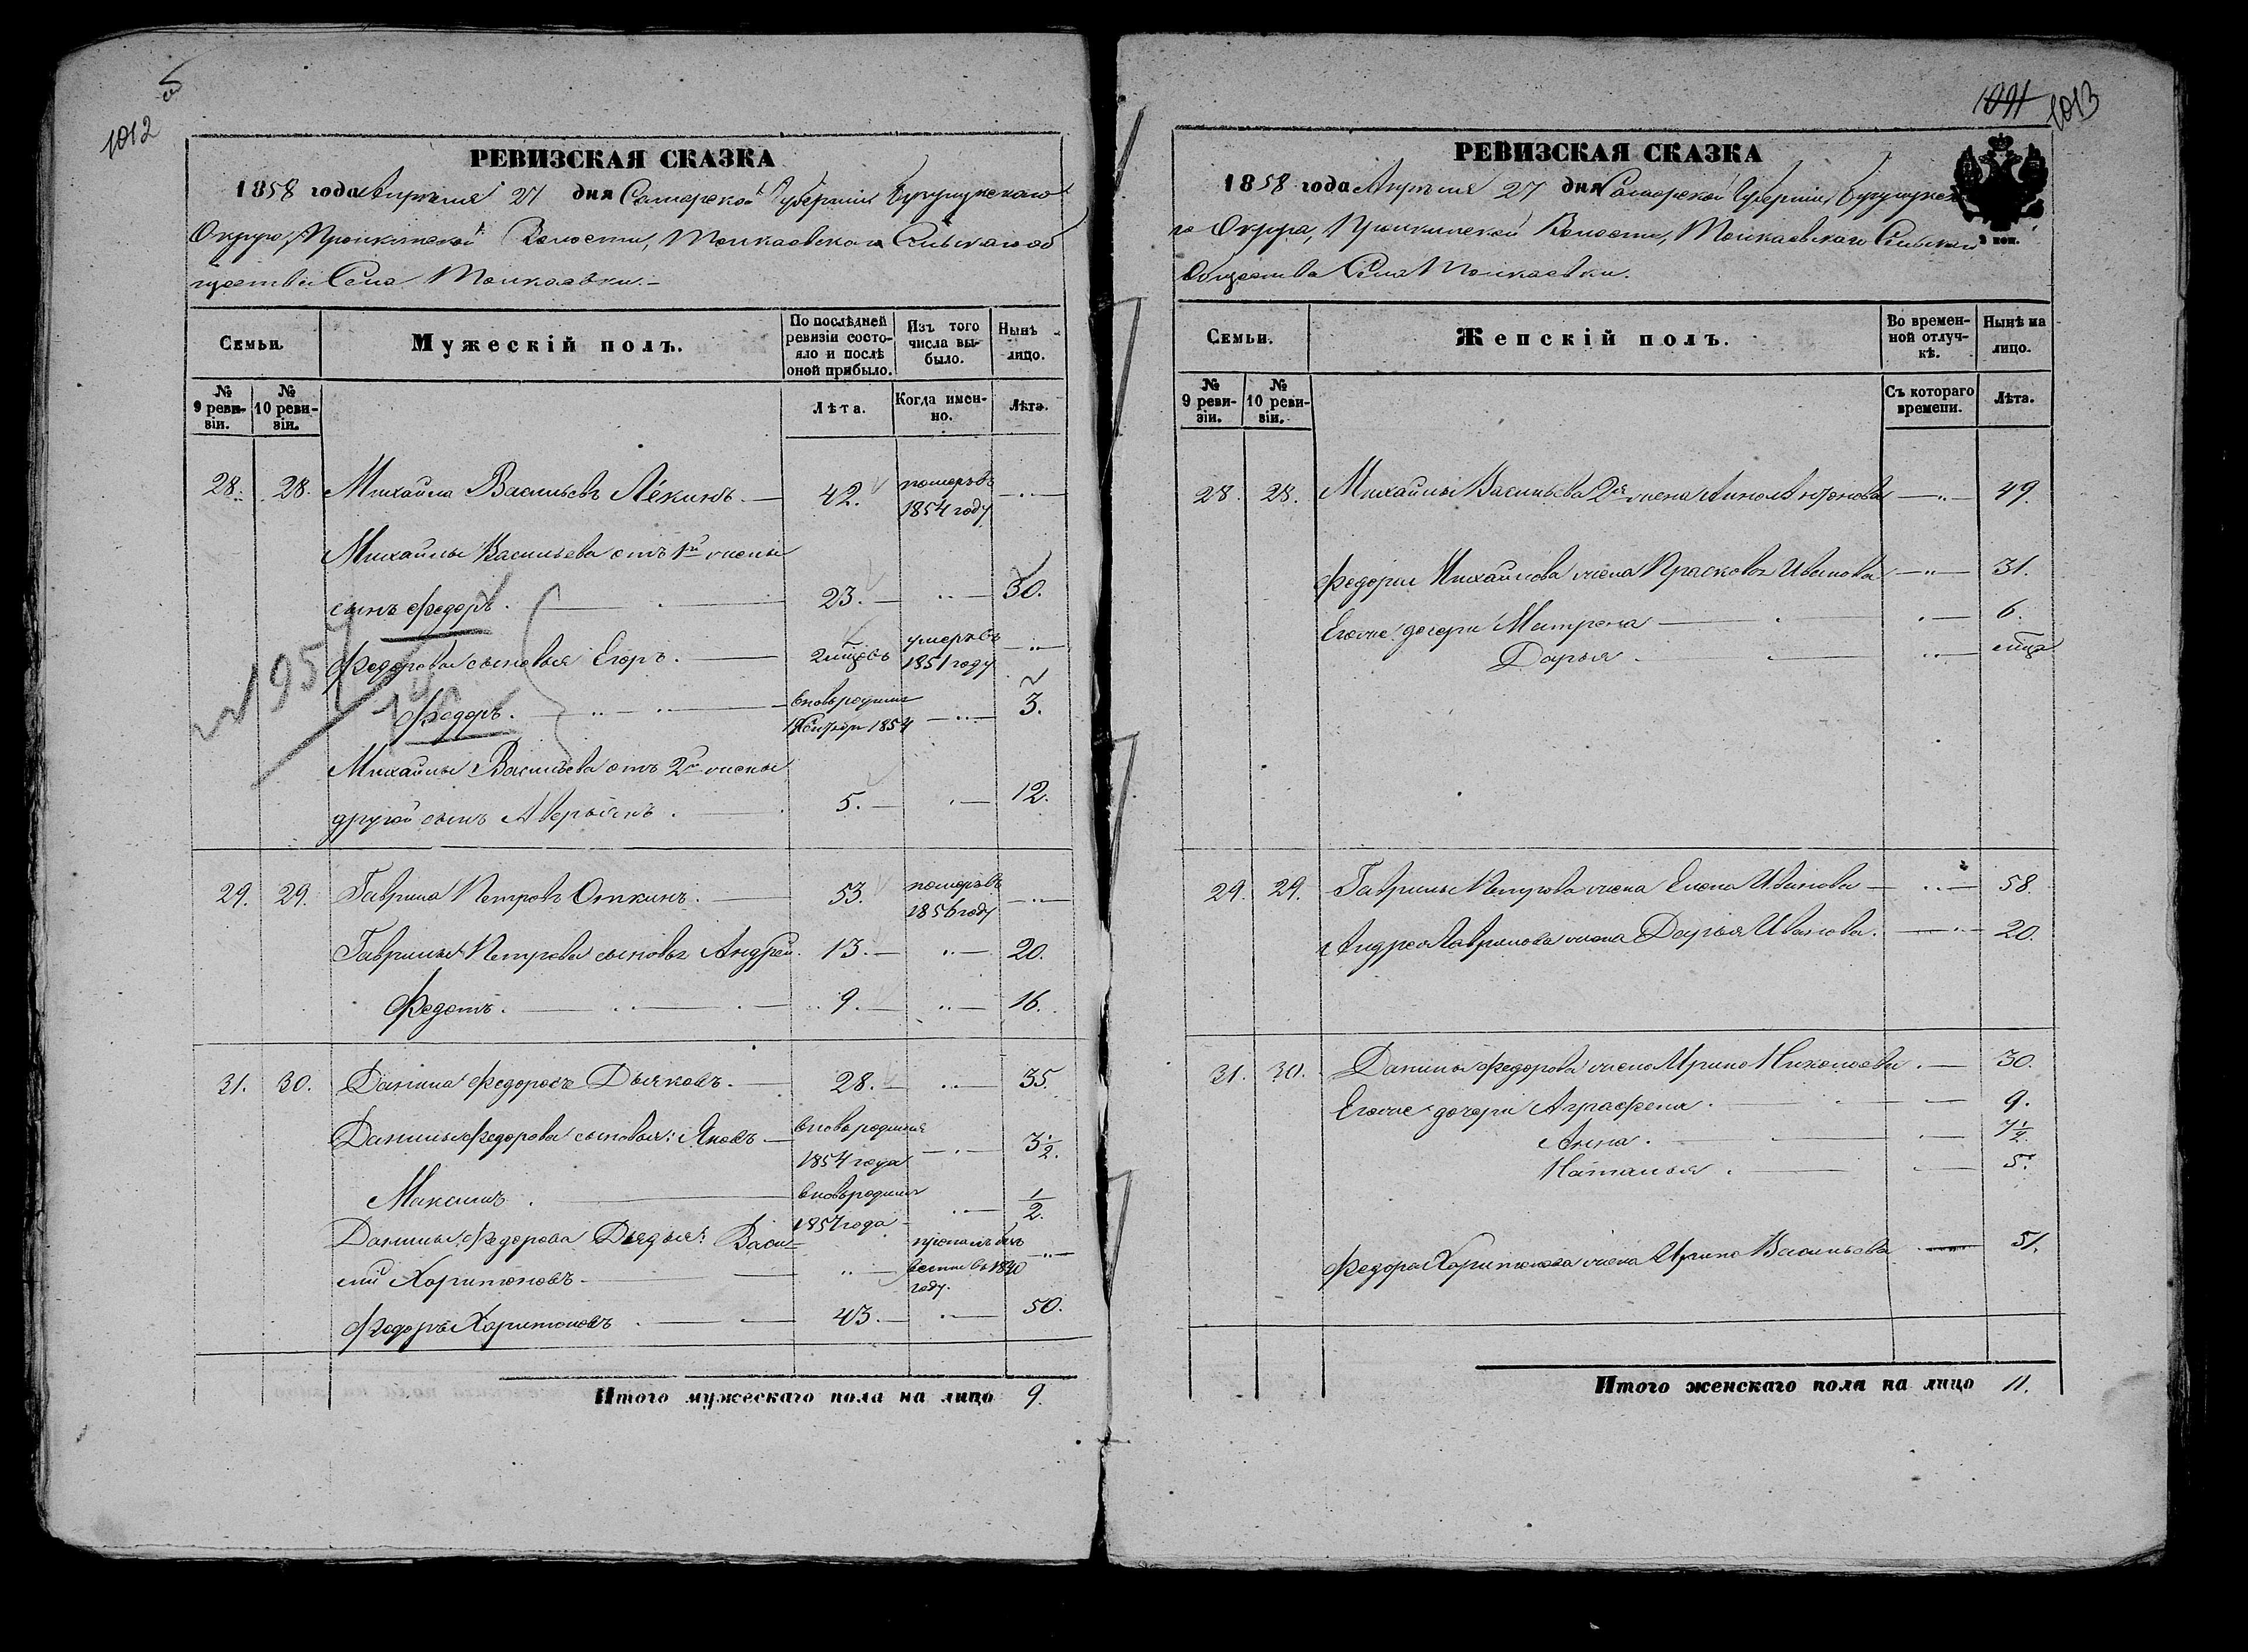 1012
РЕВИЗСКАЯ СКАЗКА
1858 года Апреля 27 дня Самарской Губернии Бугурусланскаго
Округа, Волости, Толкаевскаго Сельскаго об
щества Села Толкаевки.
Семьи. Мужескій полъ. По послѣдней ревизіи состояло и послѣ оной прибыло. Изъ того числа выбыло. Нынѣ лицо.
№ 9 ревизіи. № 10 ревизіи. Лѣта. Когда именно. Лѣта.
28. 28. Михайла Васильевъ Лёкинъ. 42. померъ въ 1854 году
Михайлы Васильева отъ 1й жены
сынъ Федоръ. 23. 30.
Федорова сыновья Егоръ. умеръ въ 1851 году
Федоръ. вновь рожден 1854 3.
Михайлы Васильева отъ 2й жены
другой сынъ Аверьянъ. 5. 12.
29. 29. Гаврила Петровъ Откинъ. 53. померъ въ 1856 году
Гаврилы Петрова сыновья Андрей. 13. 20.
Федотъ. 9. 16.
31. 30. Данила Федоровъ Дьяковъ. 28. 35.
Данилы Федорова сыновья: Яковъ вновь родился 1854 года 3 1/2.
Максимъ. вновь родился 1857 года 1/2.
Данилы Федорова Дядья: Васи-
лій Харитоновъ году.
Федоръ Харитоновъ. 43. 50.
Итого мужескаго пола на лицо 9.
1091 1013
РЕВИЗСКАЯ СКАЗКА
1858 года Апреля 27 дня Самарской Губерніи Бугурусланска
го Округа, Волости, Толкаевскаго Сельскаго
Общества Села Толкаевки.
Семьи. Женскій полъ. Во временной отлучкѣ. Нынѣ на лицо.
№ 9 ревизіи. № 10 ревизіи. Съ котораго времени. Лѣта.
28. 28. Михайлы Васильева 2я жена Антонова 49.
Федора Михайлова жена Прасковья Иванова 31.
Егоже дочери Матрена 6.
Дарья
29. 29. Гаврилы Петрова жена Елена Иванова 58.
Андрея Гаврилова жена Дарья Иванова. 20.
31. 30. Данилы Федорова жена Ирина Николаева. 30.
Егоже дочери Аграфена. 9.
Анна. 7 1/2.
Наталья. 5.
Федора Харитонова жена Ирина Васильева 51.
Итого женскаго пола на лицо 11.